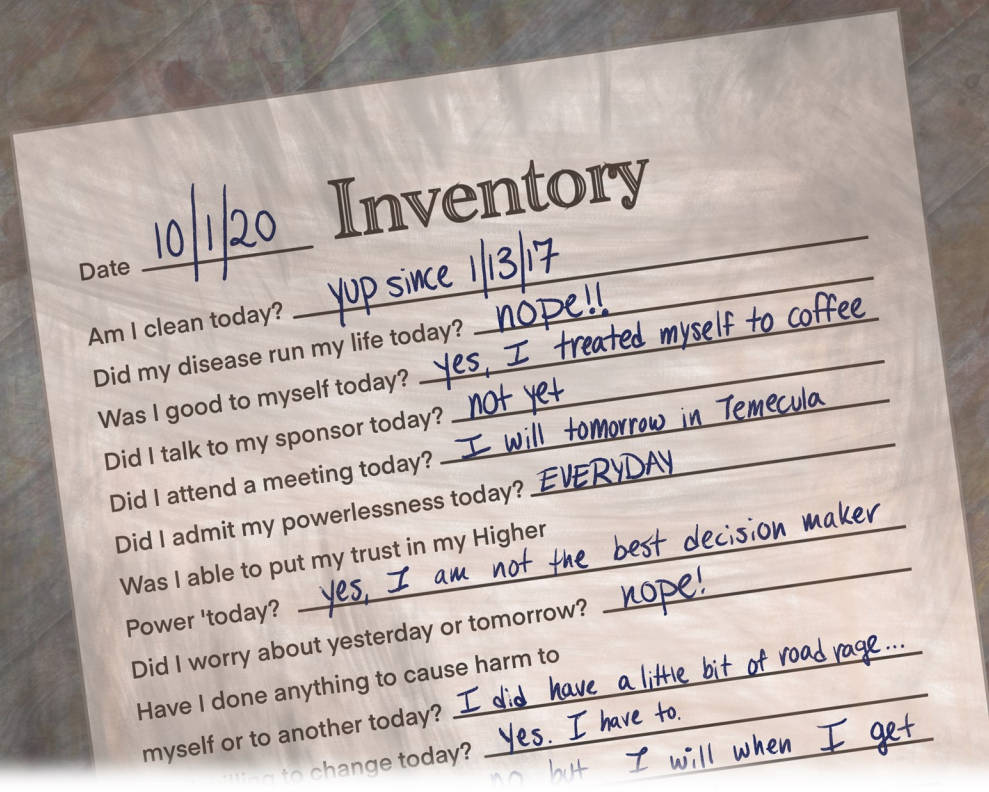 Inventory
Date 10/1/20
Am I clean today? yup since 1/13/17
Did my disease run my life today? nope!!
Was I good to myself today? yes, I treated myself to coffee
Did I talk to my sponsor today? not yet
Did I attend a meeting today? I will tomorrow in Temecula
Did I admit my powerlessness today? EVERYDAY
Was I able to put my trust in my Higher
Power 'today? yes, I am not the best decision maker
Did I worry about yesterday or tomorrow? nope!
Have I done anything to cause harm to
myself or to another today? I did have a little bit of road rage...
to change today? Yes. I have to.
no but I will when I get